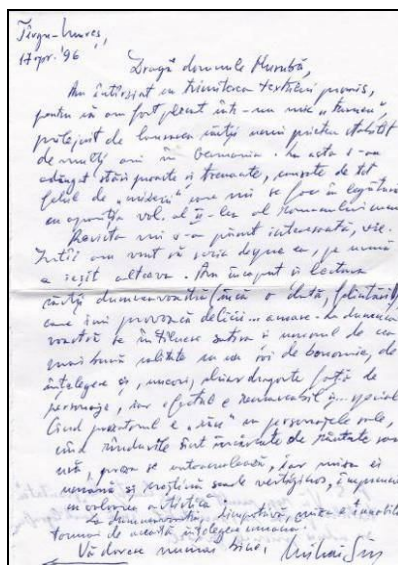 Tîrgu-Mureș,
17 apr. '96
Dragă domnule Murubă,
Am întîrziat cu trimiterea textului promis,
pentru că am fost plecat într-un mic „turneu”,
prilejuit de lansarea cărții unui prieten stabilit
de mulți ani în Germania. La asta s-au
adăugat stări proaste și trenante, cauzate de tot
felul de „mizerii” care mi se fac în legătură
cu apariția vol. al II-lea al romanului meu
Revista mi s-a părut interesantă,
Întîi am vrut să scriu despre ea, pe urmă
a ieșit altceva. Am început și lectura
cărții dumneavoastră (încă o dată, felicitări!),
care îmi provoacă delicii... amare. La dumnea-
voastră se întîlnesc satira și umorul de cea
mai bună calitate cu un de bonomie, de
înțelegere și, uneori, chiar dragoste față de
personaje, iar efectul e remarcabil și special.
Cînd prozatorul e „rău” cu personajele sale,
cînd rîndurile sînt încărcate de răutate sau
ură, proza se autoanulează, iar miza ei
umană și creștină scade vertiginos, împreună
cu valoarea artistică.
La dumneavoastră, dimpotrivă, miza e
tocmai de această înțelegere umană.
Vă doresc numai bine,
Mihai Sin